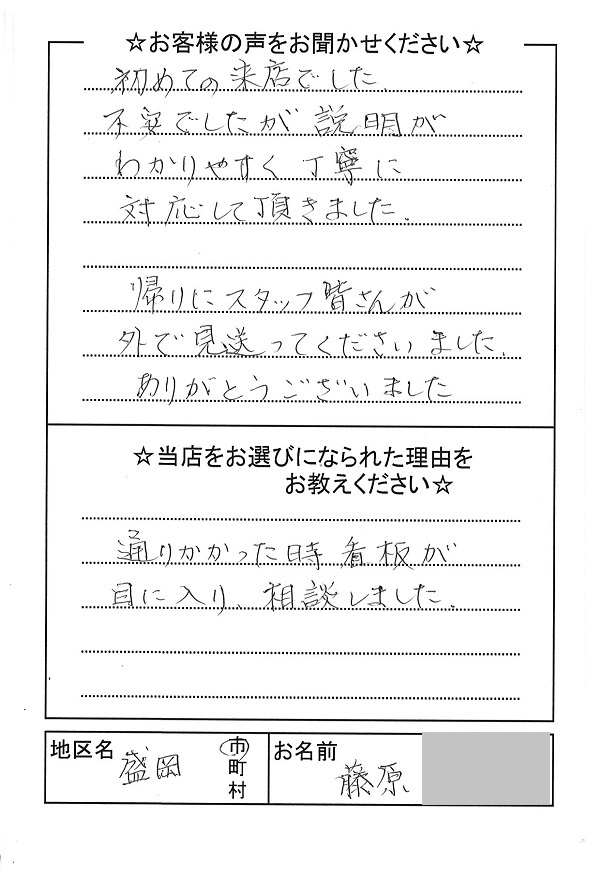 ☆お客様の声をお聞かせください☆
初めての来店でした。
不安でしたが説明が
わかりやすく丁寧に
対応して頂きました。
帰りにスタッフ皆さんが
外で見送ってくださいました。
ありがとうございました
☆当店をお選びになられた理由を
お教えください☆
通りかかった時看板が
目に入り、相談しました。
地区名 盛岡 市
町
村
お名前 藤原